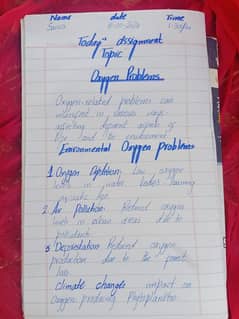 Name date Time
Today" assignment
Topic
Oxygen Problems
Oxygen-related problems can
in various ways
affecting different aspects of
life and the environment
Environmental Oxygen Problems
1 Oxygen Depletion: Low oxygen
in water bodies harming
2 Air Pollution: Reduced oxygen
in urban areas due to
pollutants
3 Deforestation: Reduced oxygen
production due to the forest
loss
Climate change: impact on
Oxygen producing Phytoplankton